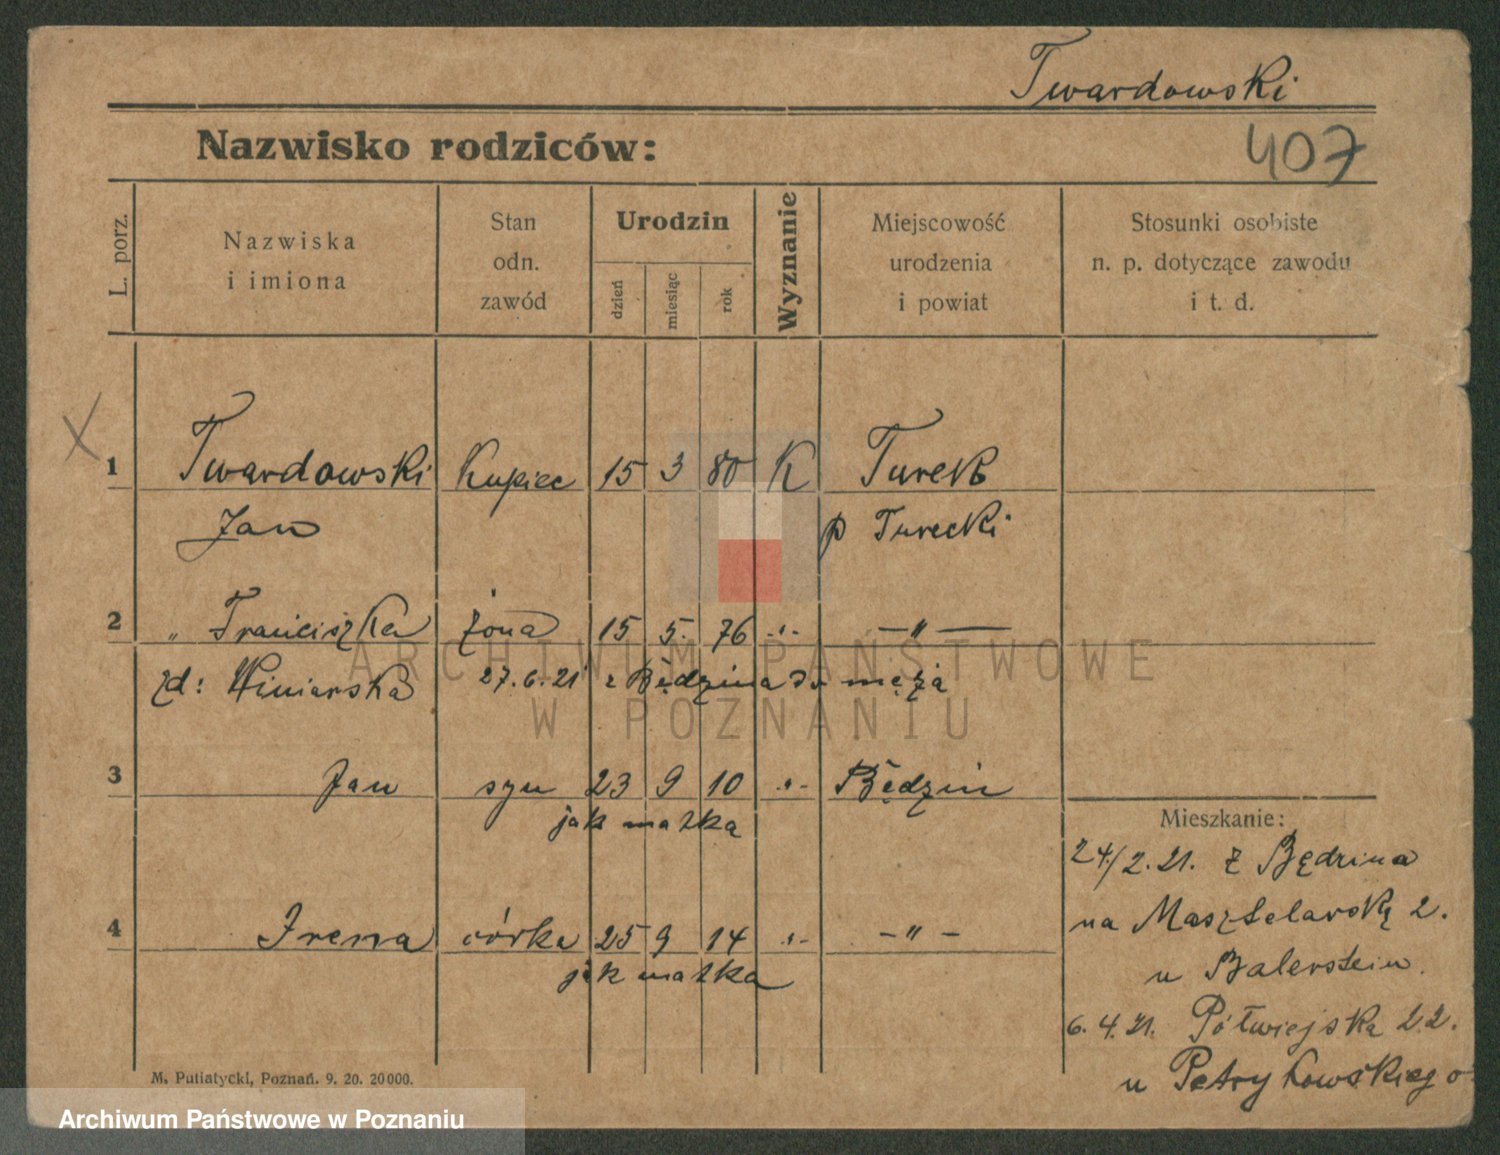 Twardowski
Nazwisko rodziców:
407
L. porz.
Nazwiska
i imiona
Stan
odn.
zawód
Urodzin
dzień
miesiąc
rok
Wyznanie
Miejscowość
urodzenia
i powiat
Stosunki osobiste
n. p. dotyczące zawodu
i t. d.
X
1 Twardowski Kupiec 15 3 80 K Turek
Jan p Turecki
2 " Franciszka żona 15 5. 76 -"- -"-
zd: Winiarska 27.6.21 z Będzina do męża
3 Jan syn 23 9 10 -"- Będzin
jak matka
4 Irena córka 25 9 14 -"- -"-
jak matka
Mieszkanie:
24/2.21. z Będzina
na Masztalarską 2.
u Balerstein.
6.4.21. Półwiejska 22.
u Petrykowskiego
M. Putiatycki, Poznań. 9. 20. 20000.
ARCHIWUM PAŃSTWOWE
W POZNANIU
Archiwum Państwowe w Poznaniu